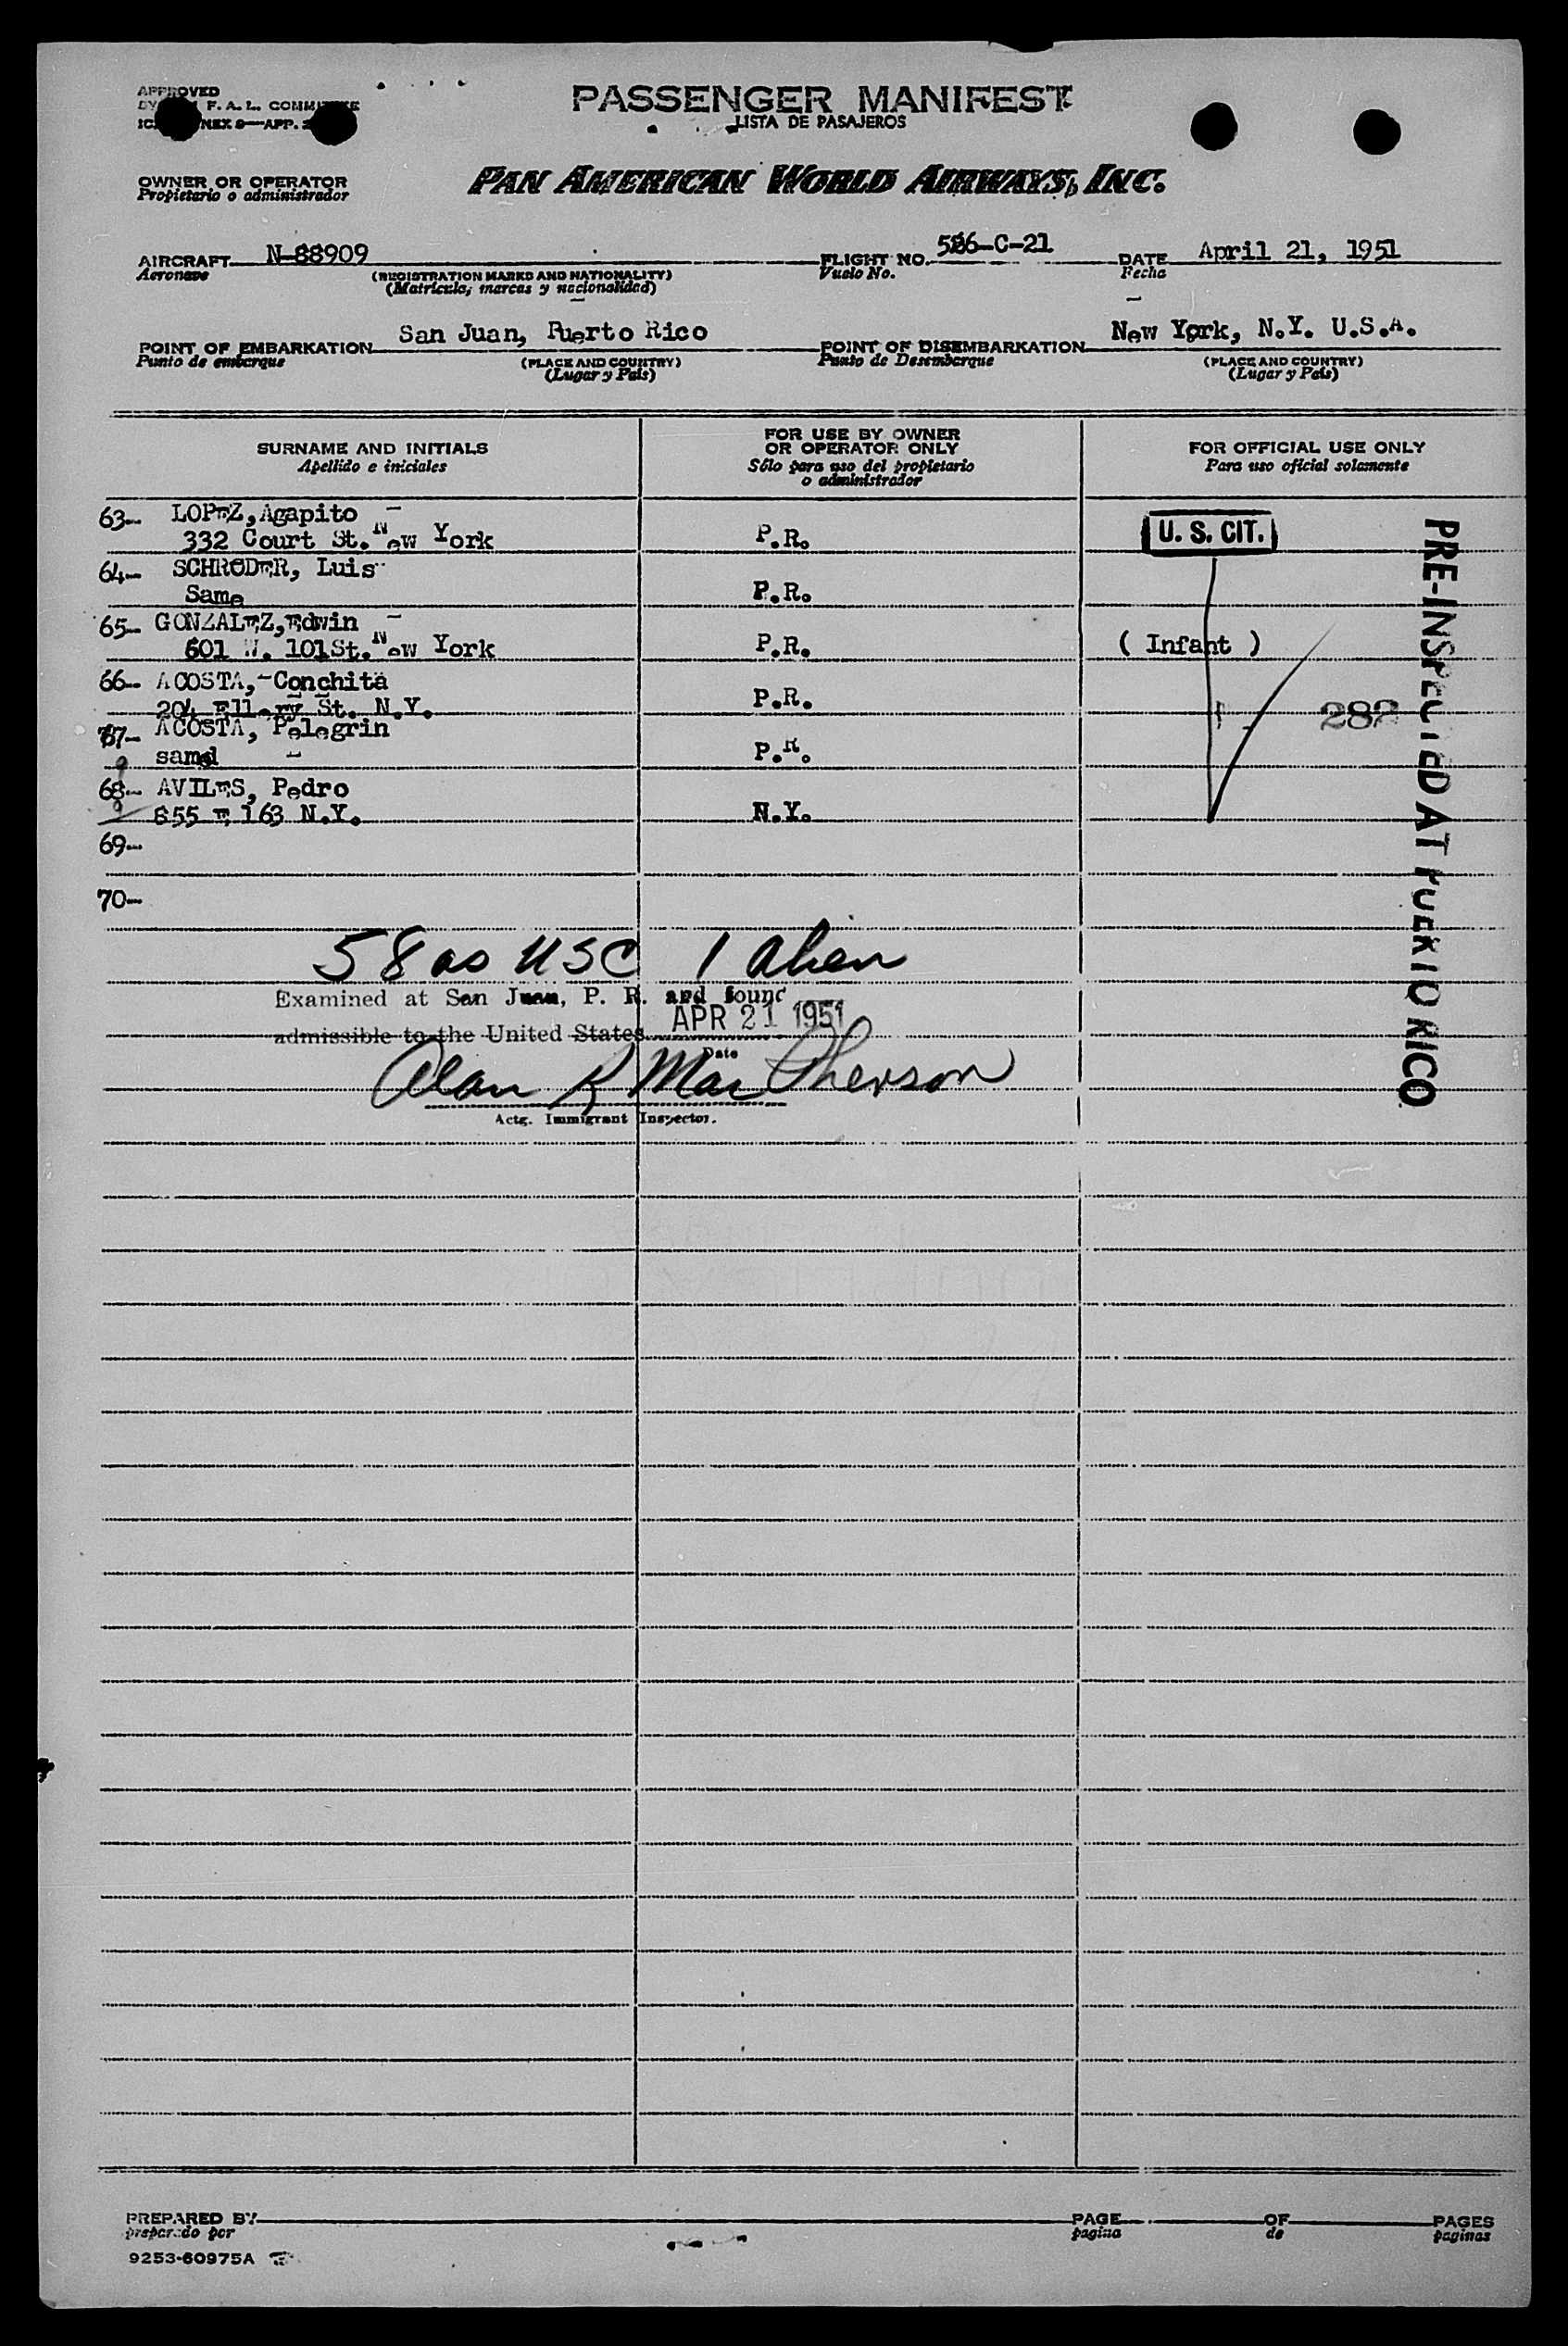 APPROVED
F. A. L. COMMITTEE
APP.
PASSENGER MANIFEST
LISTA DE PASAJEROS
OWNER OR OPERATOR
Propietario o administrador
PAN AMERICAN WORLD AIRWAYS, INC.
AIRCRAFT N-88909 FLIGHT NO. 526-C-21 DATE April 21, 1951
Aeronave (REGISTRATION MARKS AND NATIONALITY) Vuelo No. Fecha
(Matrícula, marcas y nacionalidad)
POINT OF EMBARKATION San Juan, Puerto Rico POINT OF DISEMBARKATION New York, N.Y. U.S.A.
Punto de embarque (PLACE AND COUNTRY) Punto de Desembarque (PLACE AND COUNTRY)
(Lugar y País) (Lugar y País)
SURNAME AND INITIALS FOR USE BY OWNER OR OPERATOR ONLY FOR OFFICIAL USE ONLY
Apellido e iniciales Sólo para uso del propietario o administrador Para uso oficial solamente
63- LOPEZ, Agapito
332 Court St. New York P.R. U. S. CIT.
64- SCHRODER, Luis
Same P.R.
65- GONZALEZ, Edwin
601 W. 101St. New York P.R. ( Infant )
66- ACOSTA, Conchita
204 Ellery St. N.Y. P.R. 282
67- ACOSTA, Pelegrin
same P.R.
68- AVILES, Pedro
855 E 163 N.Y. N.Y.
69-
70-
PRE-INSPECTED AT PUERTO RICO
58 as USC 1 alien
Examined at San Juan, P. R. and found
admissible to the United States APR 21 1951
Date
Alan R MacPherson
Actg. Immigrant Inspector.
PREPARED BY PAGE OF PAGES
preparado por pagina de paginas
9253-60975A